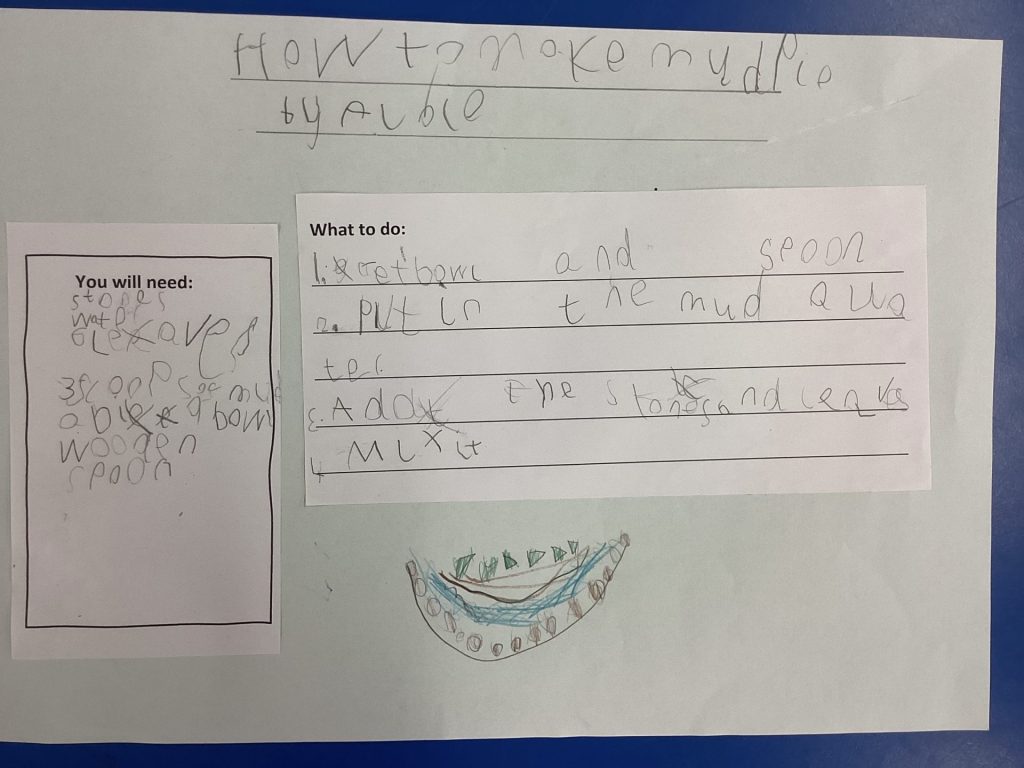 How to make mudpie
by Auble
You will need:
stones
water
6 leaves
3 scoops of mud
a bowl
wooden
spoon
What to do:
1. Get bowl and spoon
2. Put in the mud a wa
ter.
3. Add the stones and leaves
4. Mix it